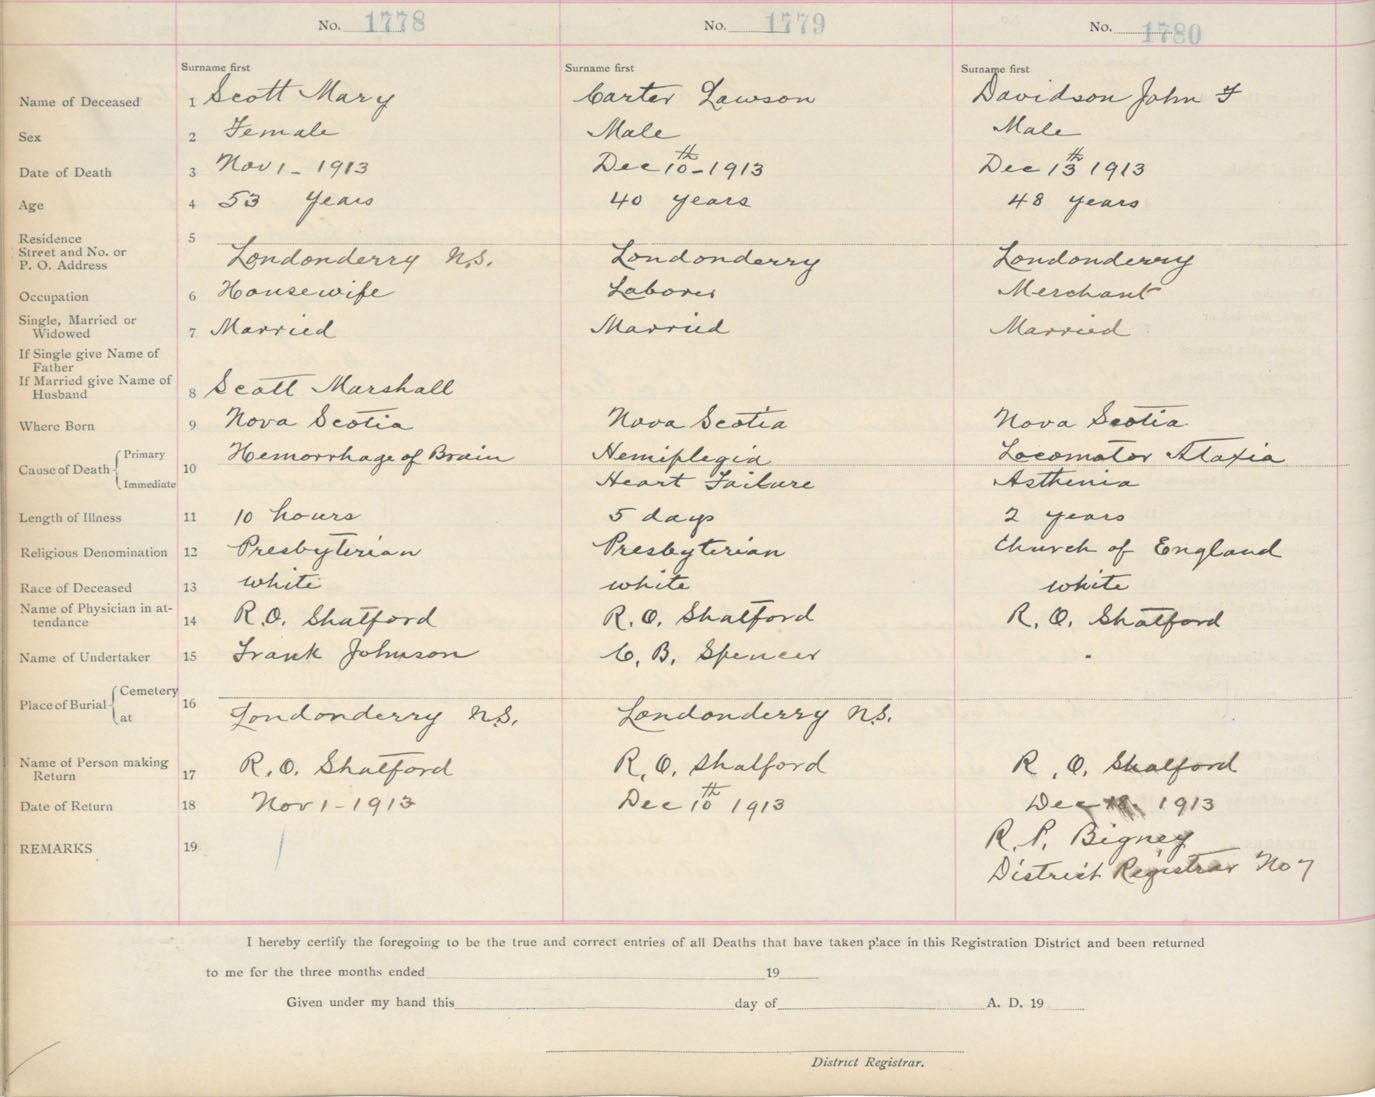 No. 1778 No. 1779 No. 1780
Surname first Surname first Surname first
Name of Deceased 1 Scott Mary Carter Lawson Davidson John F
Sex 2 Female Male Male
Date of Death 3 Nov 1 - 1913 Dec 10th - 1913 Dec 13th 1913
Age 4 53 years 40 years 48 years
Residence 5
Street and No. or
P. O. Address Londonderry N.S. Londonderry Londonderry
Occupation 6 Housewife Laborer Merchant
Single, Married or
Widowed 7 Married Married Married
If Single give Name of
Father
If Married give Name of
Husband 8 Scott Marshall
Where Born 9 Nova Scotia Nova Scotia Nova Scotia
Cause of Death Primary 10 Hemorrhage of Brain Hemiplegia Locomotor Ataxia
Immediate Heart Failure Asthenia
Length of Illness 11 10 hours 5 days 2 years
Religious Denomination 12 Presbyterian Presbyterian Church of England
Race of Deceased 13 white white white
Name of Physician in at-
tendance 14 R.O. Shatford R. O. Shatford R. O. Shatford
Name of Undertaker 15 Frank Johnson C. B. Spencer
Place of Burial Cemetery 16
at Londonderry N.S. Londonderry N.S.
Name of Person making
Return 17 R. O. Shatford R. O. Shatford R. O. Shatford
Date of Return 18 Nov 1 - 1913 Dec 10th 1913 Dec 1913
REMARKS 19 R. P. Bigney
District Registrar No 7
I hereby certify the foregoing to be the true and correct entries of all Deaths that have taken place in this Registration District and been returned
to me for the three months ended 19
Given under my hand this day of A. D. 19
District Registrar.